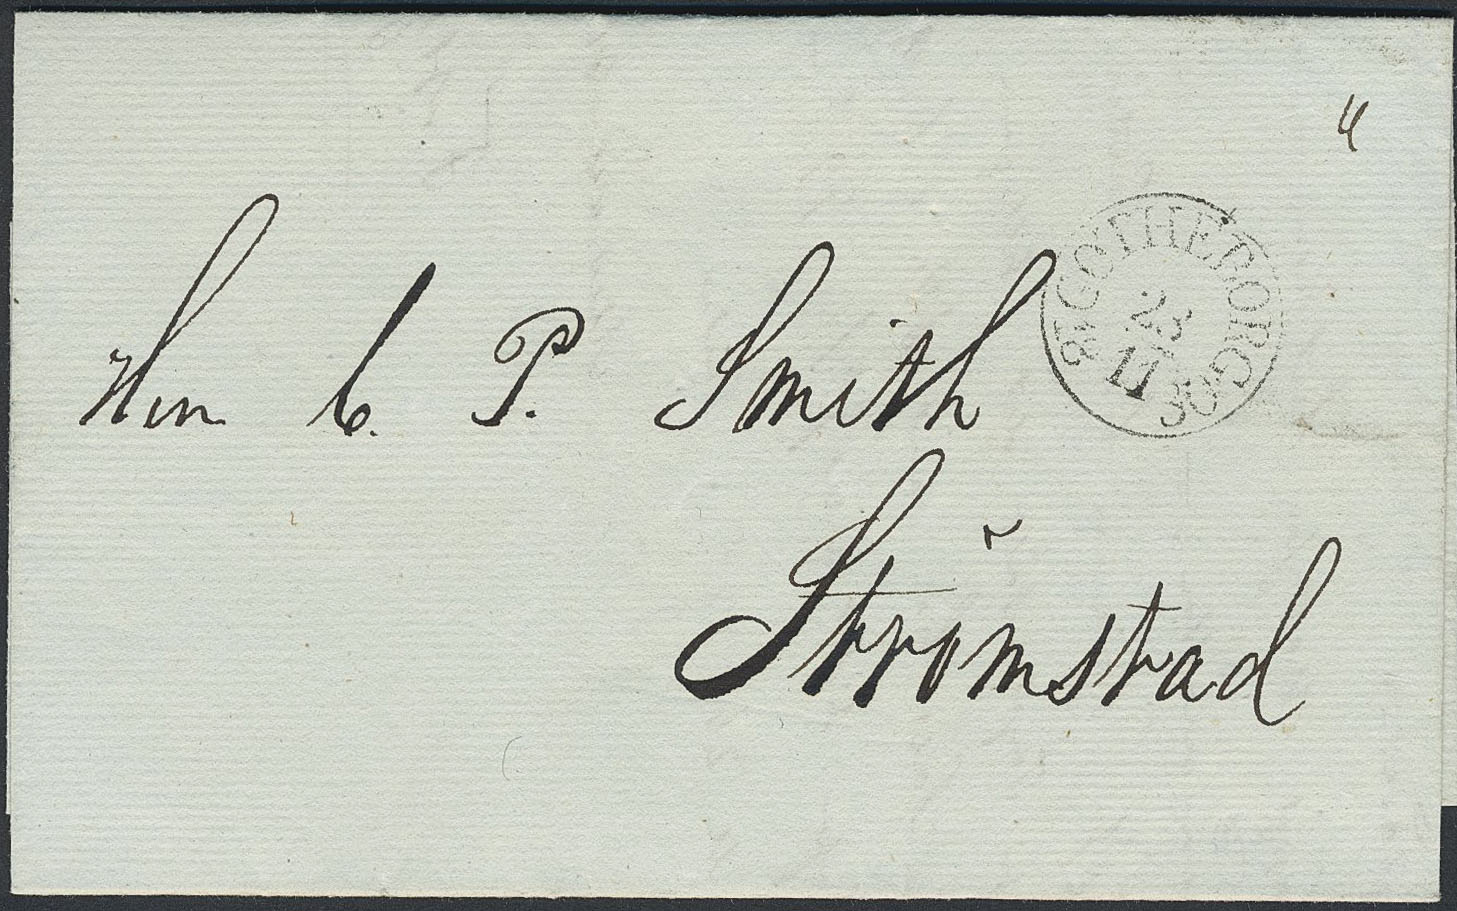 Herr C. P. Smith
Strömstad
GÖTHEBORG
11